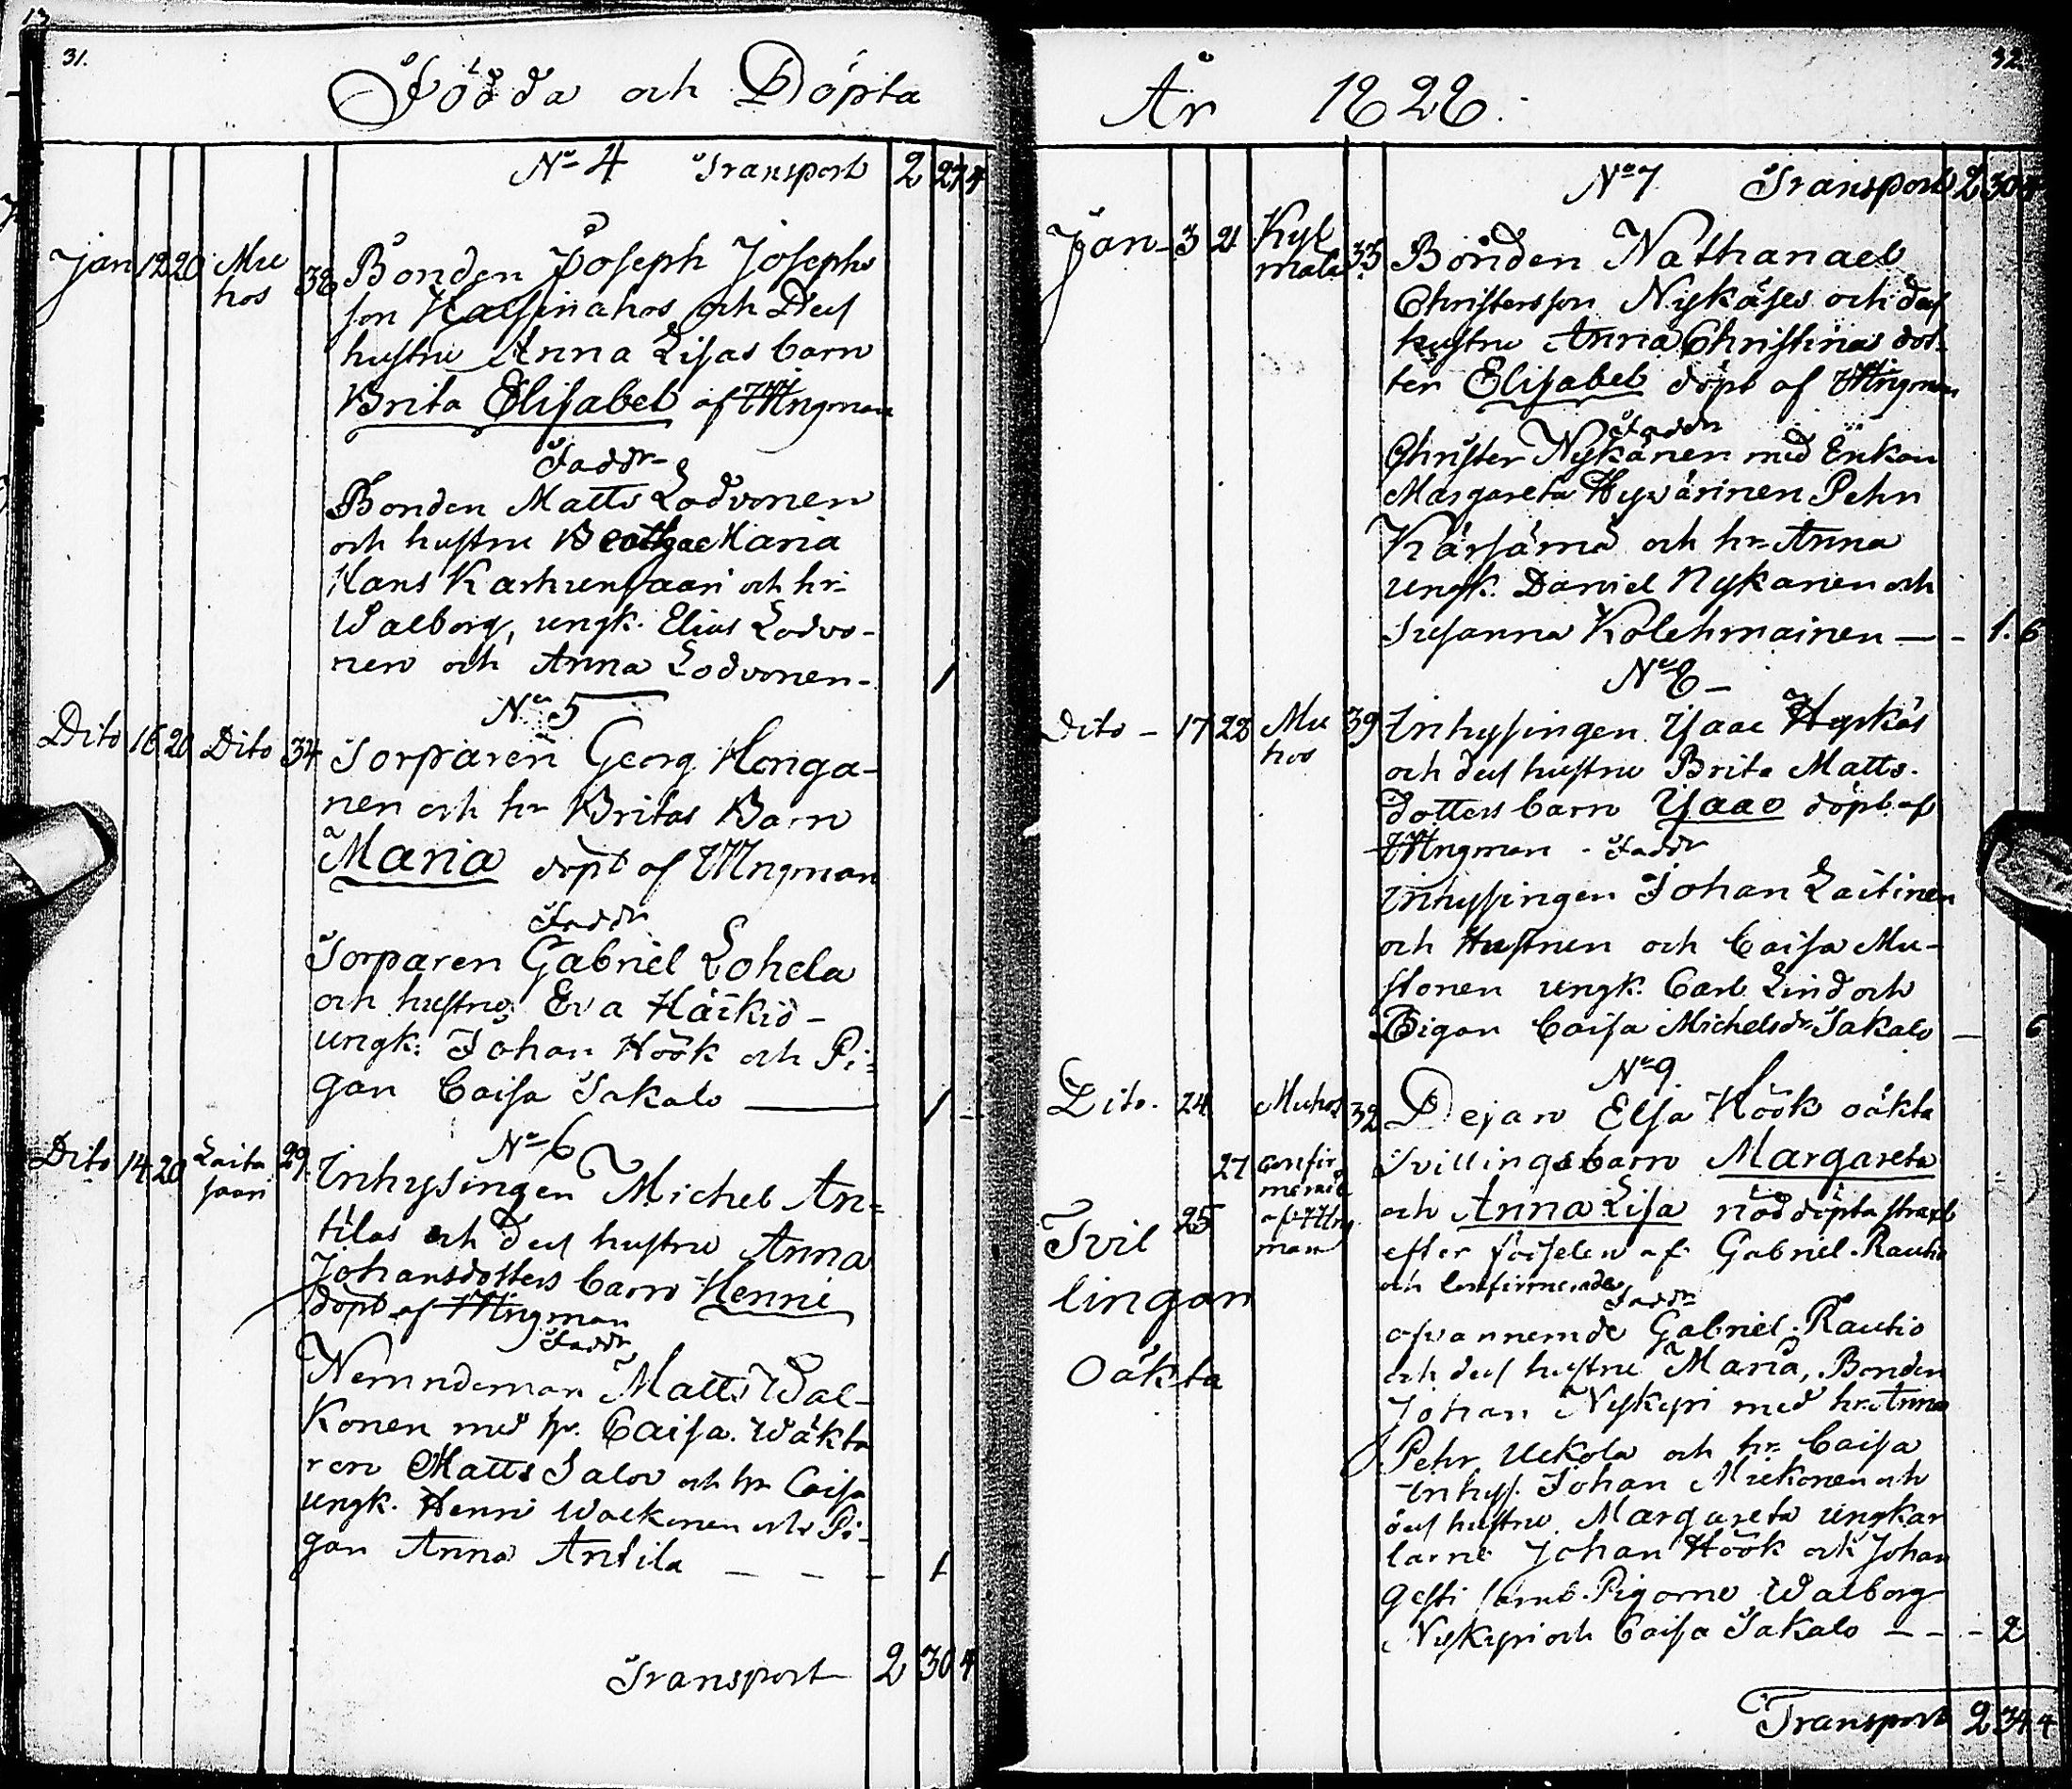 31.
Födda och Döpta
No 4 Transport 2 27 4
Jan 12 20 Mu hos 38 Bonden Joseph Josephs
son och Dess
hustru Anna Lisas barn
Brita Elisabet af Ungman
Faddr
Bonden Matts Lodvonen
och hustru Maria
Hans Karhunsaari och hr
Walborg, ungk. Elias Lodvo-
nen och Anna Lodvonen- 1
No 5
Dito 16 20 Dito 34 Torparen Georg Honga-
nen och hr Britas Barn
Maria döpt af Ungman
Faddr
Torparen Gabriel Lohela
och hustru Eva Häikiö-
ungk. Johan Höök och Pi-
gan Caisa Sakalo 1 -
No 6
Dito 14 20 Laita saari 29 Inhysingen Michel An-
tilas och dess hustru Anna
Johansdotters barn Henric
döpt af Ungman
Faddr
Nemndeman Matts Wal-
konen med hr. Caisa. Wäkta
ren Matts Salo och hr Caisa
ungk. Henric Walkonen och Pi-
gan Anna Antila - - - 1
Transport 2 30 4
32.
År 1828.
No 7 Transport 2 30 4
Jan- 3 21 Kyl mälä 33 Bonden Nathanael
Christersson Nykäses och dess
hustru Anna Christinas dot-
ter Elisabet döpt af Ungman
Faddr
Christer Nykänen med Enkan
Margareta Hyvärinen Pehr
Kärsämä och hr Anna
ungk. Daniel Nykänen och
Susanna Kolehmainen - - 1. 6
No 8 -
Dito - 17 22 Mu hos 39 Inhysingen Isaac
och dess hustru Brita Matts-
dotters barn Isaac döpt af
Ungman - Faddr
Inhysingen Johan Laitinen
och Hustrun och Caisa Mu-
stonen ungk. Carl Lind och
Pigan Caisa Michelsdr Sakalo - 6
No 9.
Dito. 24 Muhos 32 Dejan Elsa Höök oäkta
27 confir merade Tvillingsbarn Margareta
Tvil 25 af Ung man och Anna Lisa nöddöpta straxt
efter födselen af Gabriel Rautio
lingar och confirmerades Faddr
ofvannemde Gabriel Rautio
Oäkta och dess hustru Maria, Bonden
Johan Nyskyri med hr Anna
Pehr Uckola och hr Caisa
Inhys. Johan och
dess hustru Margareta ungkar
larne Johan Höök och Johan
samt Pigorne Walborg
Nyskyri och Caisa Sakalo - - - 2
Transport 2 34 4